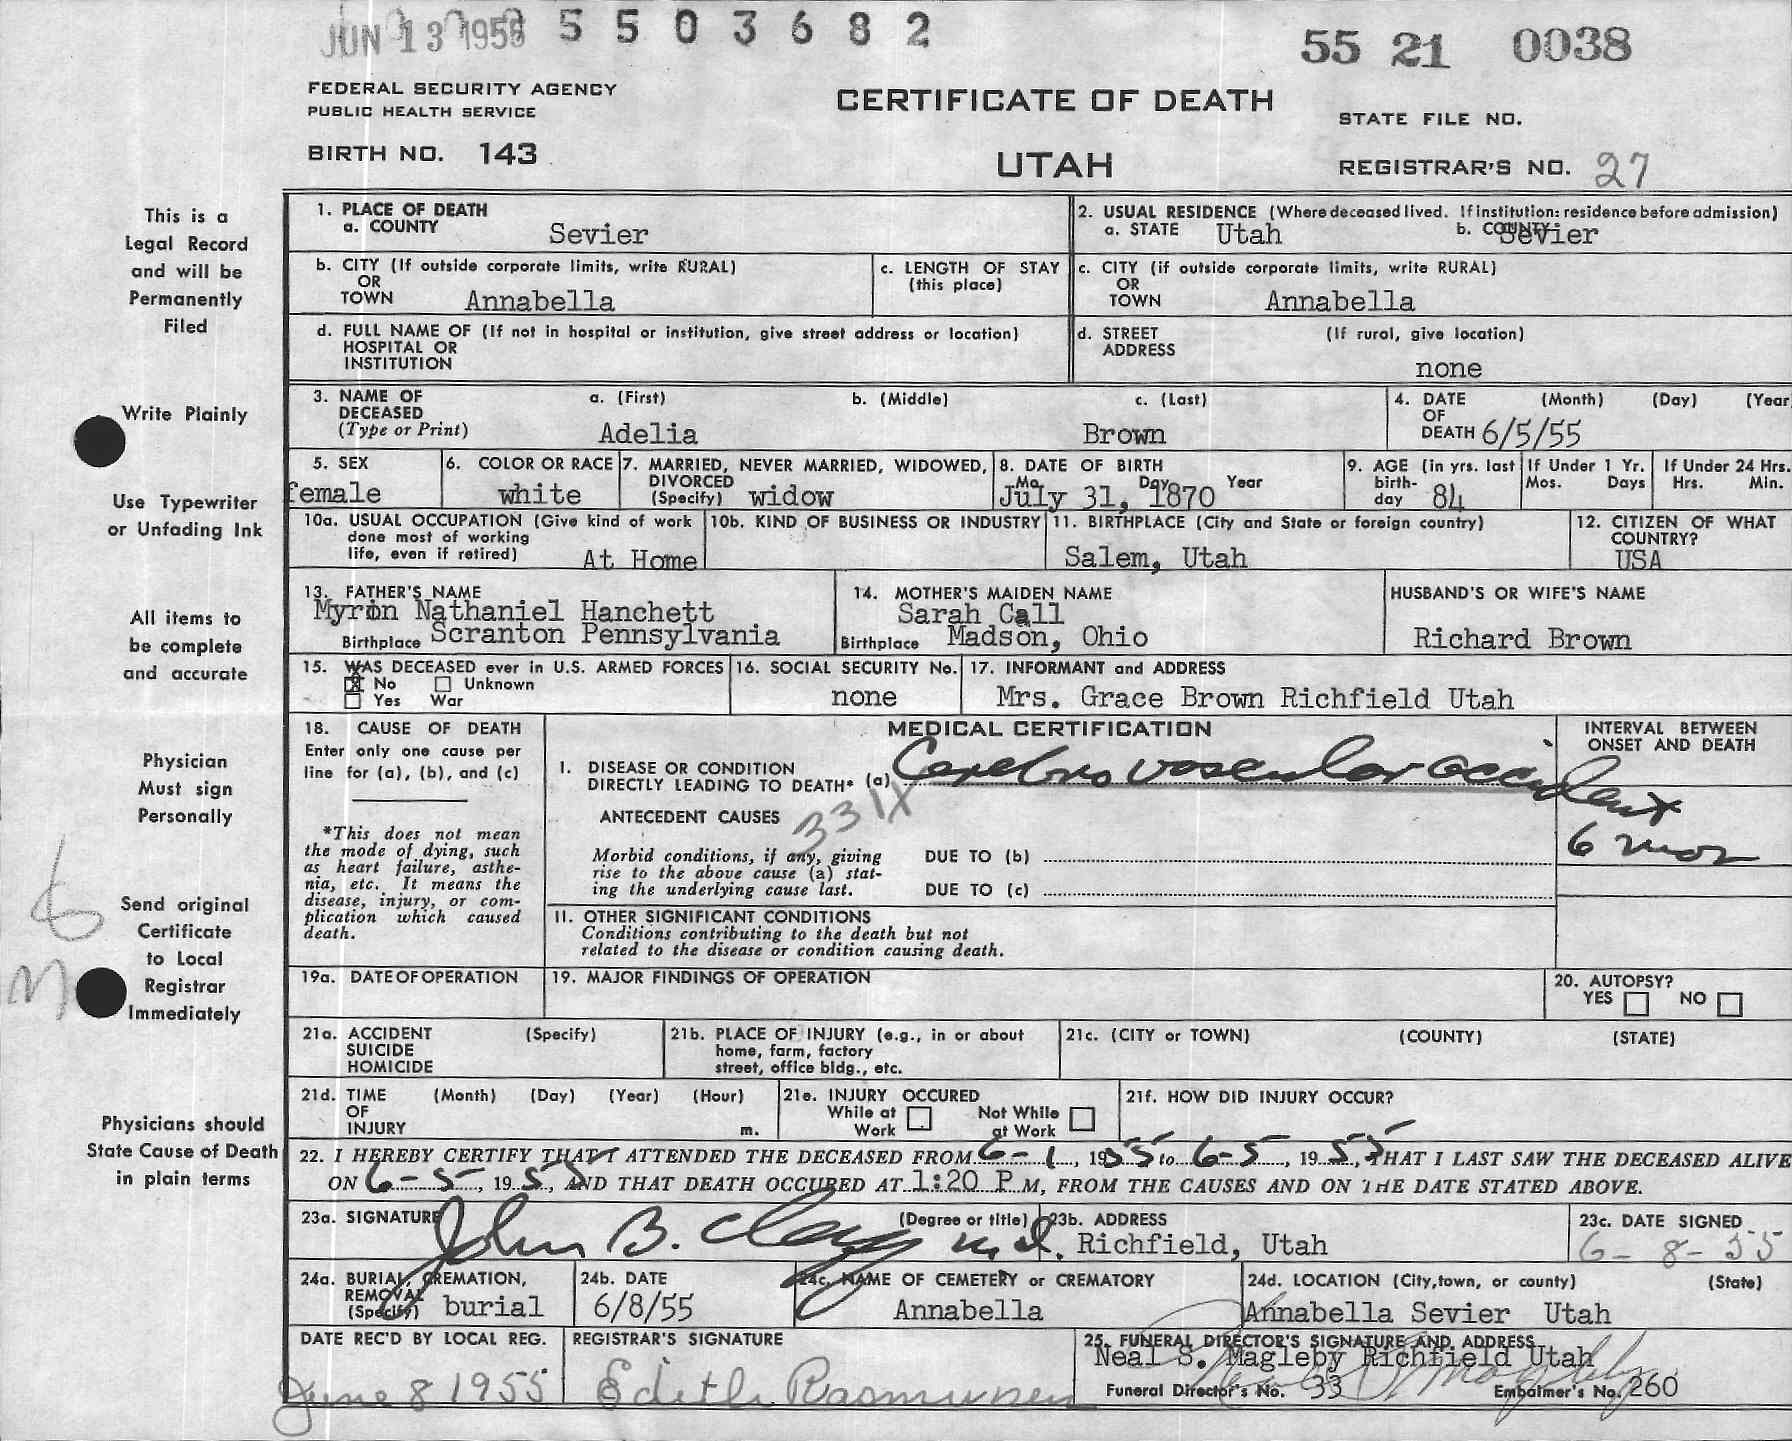 JUN 13 1955 5503682
55 21 0038
FEDERAL SECURITY AGENCY
PUBLIC HEALTH SERVICE
CERTIFICATE OF DEATH
STATE FILE NO.
BIRTH NO. 143
UTAH
REGISTRAR'S NO. 27
This is a
Legal Record
and will be
Permanently
Filed
Write Plainly
Use Typewriter
or Unfading Ink
All items to
be complete
and accurate
Physician
Must sign
Personally
Send original
Certificate
to Local
Registrar
Immediately
Physicians should
State Cause of Death
in plain terms
1. PLACE OF DEATH
a. COUNTY Sevier
2. USUAL RESIDENCE (Where deceased lived. If institution: residence before admission)
a. STATE Utah b. COUNTY Sevier
b. CITY (If outside corporate limits, write RURAL)
OR
TOWN Annabella
c. LENGTH OF STAY
(this place)
c. CITY (if outside corporate limits, write RURAL)
OR
TOWN Annabella
d. FULL NAME OF (If not in hospital or institution, give street address or location)
HOSPITAL OR
INSTITUTION
d. STREET (If rural, give location)
ADDRESS
none
3. NAME OF a. (First) b. (Middle) c. (Last)
DECEASED
(Type or Print) Adelia Brown
4. DATE (Month) (Day) (Year
OF
DEATH 6/5/55
5. SEX
female
6. COLOR OR RACE
white
7. MARRIED, NEVER MARRIED, WIDOWED,
DIVORCED
(Specify) widow
8. DATE OF BIRTH
Mo. Day Year
July 31, 1870
9. AGE (in yrs. last
birth-
day 84
If Under 1 Yr.
Mos. Days
If Under 24 Hrs.
Hrs. Min.
10a. USUAL OCCUPATION (Give kind of work
done most of working
life, even if retired) At Home
10b. KIND OF BUSINESS OR INDUSTRY
11. BIRTHPLACE (City and State or foreign country)
Salem, Utah
12. CITIZEN OF WHAT
COUNTRY?
USA
13. FATHER'S NAME
Myron Nathaniel Hanchett
Birthplace Scranton Pennsylvania
14. MOTHER'S MAIDEN NAME
Sarah Call
Birthplace Madson, Ohio
HUSBAND'S OR WIFE'S NAME
Richard Brown
15. WAS DECEASED ever in U.S. ARMED FORCES
X No Unknown
Yes War
16. SOCIAL SECURITY No.
none
17. INFORMANT and ADDRESS
Mrs. Grace Brown Richfield Utah
18. CAUSE OF DEATH
Enter only one cause per
line for (a), (b), and (c)
*This does not mean
the mode of dying, such
as heart failure, asthe-
nia, etc. It means the
disease, injury, or com-
plication which caused
death.
MEDICAL CERTIFICATION
INTERVAL BETWEEN
ONSET AND DEATH
I. DISEASE OR CONDITION
DIRECTLY LEADING TO DEATH* (a) Cerebro vascular accident
ANTECEDENT CAUSES 331X
6 mos
Morbid conditions, if any, giving
rise to the above cause (a) stat-
ing the underlying cause last.
DUE TO (b)
DUE TO (c)
II. OTHER SIGNIFICANT CONDITIONS
Conditions contributing to the death but not
related to the disease or condition causing death.
19a. DATE OF OPERATION
19. MAJOR FINDINGS OF OPERATION
20. AUTOPSY?
YES NO
21a. ACCIDENT (Specify)
SUICIDE
HOMICIDE
21b. PLACE OF INJURY (e.g., in or about
home, farm, factory
street, office bldg., etc.
21c. (CITY or TOWN) (COUNTY) (STATE)
21d. TIME (Month) (Day) (Year) (Hour)
OF
INJURY m.
21e. INJURY OCCURED
While at Work Not While at Work
21f. HOW DID INJURY OCCUR?
22. I HEREBY CERTIFY THAT I ATTENDED THE DECEASED FROM 6-1, 1955 to 6-5, 1955, THAT I LAST SAW THE DECEASED ALIVE
ON 6-5, 1955, AND THAT DEATH OCCURED AT 1:20 P M, FROM THE CAUSES AND ON THE DATE STATED ABOVE.
23a. SIGNATURE (Degree or title)
John B. Clay M.D.
23b. ADDRESS
Richfield, Utah
23c. DATE SIGNED
6-8-55
24a. BURIAL, CREMATION,
REMOVAL
(Specify) burial
24b. DATE
6/8/55
24c. NAME OF CEMETERY or CREMATORY
Annabella
24d. LOCATION (City, town, or county) (State)
Annabella Sevier Utah
DATE REC'D BY LOCAL REG.
June 8 1955
REGISTRAR'S SIGNATURE
Edith Rasmussen
25. FUNERAL DIRECTOR'S SIGNATURE AND ADDRESS
Neal S. Magleby Richfield Utah
Funeral Director's No. 33 Embalmer's No. 260